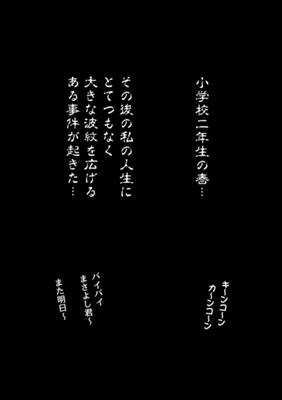 小学校二年生の春…
その後の私の人生に
とてつもなく
大きな波紋を広げる
ある事件が起きた…
キーンコーン
カーンコーン
バイバイ
まさよし君〜
また明日〜